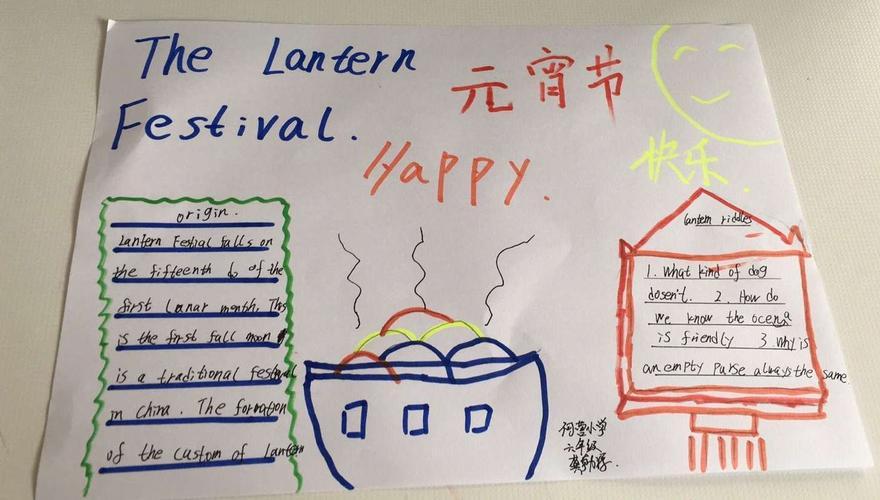 The Lantern
Festival.
元宵节
Happy.
快乐.
origin.
Lantern Festial falls on
the fifteenth of the
first Lunar month. This
is the first fall moon
is a traditional festival
in china. The formation
of the custom of Lantern
lantern riddles
1. What kind of dog
dosen't. 2. How do
we know the ocen
is friendly 3. Why is
an empty purse always the same
小学
六年级